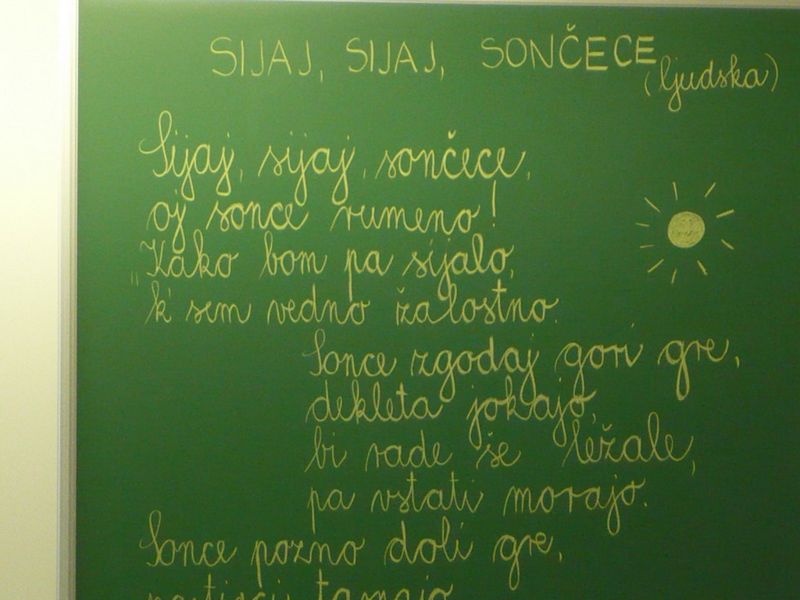 SIJAJ, SIJAJ, SONČECE
(ljudska)
Sijaj, sijaj, sončece,
oj sonce rumeno!
"Kako bom pa sijalo,
k' sem vedno žalostno.
Sonce zgodaj gori gre,
dekleta jokajo,
bi rade še ležale,
pa vstati morajo.
Sonce pozno doli gre,